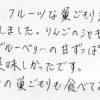 、フルーツな巣ごもり
しました。りんごのジャキ
ブルーベリーの甘ずっぱ
美味しかったです。
の巣ごもりも食べて